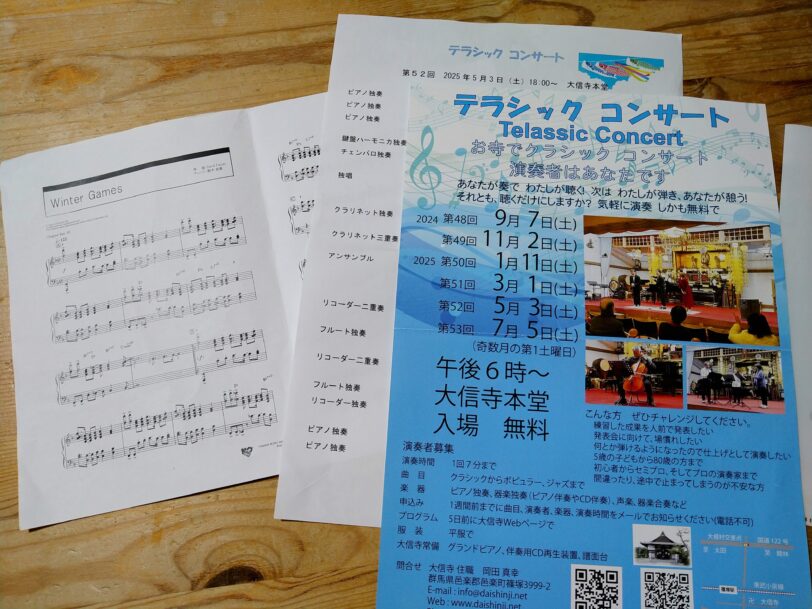 Winter Games
テラシック コンサート
第52回 2025年5月3日(土)18:00~ 大信寺本堂
ピアノ独奏
ピアノ独奏
ピアノ独奏
鍵盤ハーモニカ独奏
チェンバロ独奏
独唱
クラリネット独奏
クラリネット三重奏
アンサンブル
リコーダー二重奏
フルート独奏
リコーダー二重奏
フルート独奏
リコーダー独奏
ピアノ独奏
ピアノ独奏
テラシック コンサート
Telassic Concert
お寺でクラシック コンサート
演奏者はあなたです
あなたが奏で わたしが聴く! 次は わたしが弾き、あなたが憩う!
それとも、聴くだけにしますか? 気軽に演奏 しかも無料で
2024 第48回 9月 7日(土)
第49回 11月 2日(土)
2025 第50回 1月11日(土)
第51回 3月 1日(土)
第52回 5月 3日(土)
第53回 7月 5日(土)
(奇数月の第1土曜日)
午後6時~
大信寺本堂
入場 無料
こんな方 ぜひチャレンジしてください。
練習した成果を人前で発表したい
発表会に向けて、場慣れしたい
何とか弾けるようになったので仕上げとして演奏したい
5歳の子どもから80歳の方まで
初心者からセミプロ、そしてプロの演奏家まで
間違ったり、途中で止まってしまうのが不安な方
演奏者募集
演奏時間 1回7分まで
曲目 クラシックからポピュラー、ジャズまで
楽器 ピアノ独奏、器楽独奏(ピアノ伴奏やCD伴奏)、声楽、器楽合奏など
申込み 1週間前までに曲目、演奏者、楽器、演奏時間をメールでお知らせください(電話不可)
プログラム 5日前に大信寺Webページで
服装 平服で
大信寺常備 グランドピアノ、伴奏用CD再生装置、譜面台
問合せ 大信寺 住職 岡田 真幸
群馬県邑楽郡邑楽町篠塚3999-2
E-mail : info@daishinji.net
Web : www.daishinji.net
国道122号
至 太田
至 館林
東武小泉線
篠塚駅
卍 大信寺